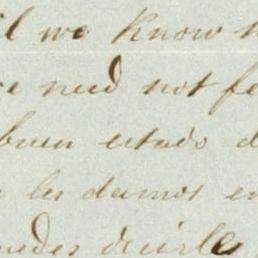 il we know
e need not fe
buen estado d
les damos en
uedes decirle